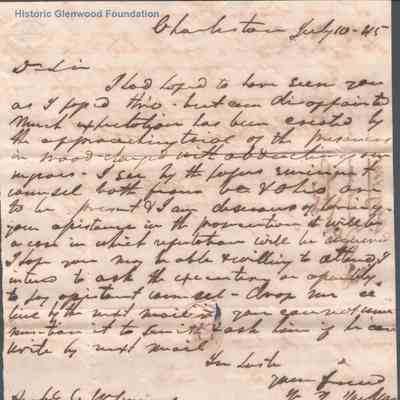 Historic Glenwood Foundation
Charlestown July 10 - 45
Dr Sir
I had hoped to have seen you
as I passed this - but am disappointed
Much expectation has been created by
the approaching trial of the prisoners
in wood charged with abducting our
negroes - I see by the papers eminent
counsel both from Va & Ohio are
to be present & I am desirous of having
your assistance in the prosecution it will be
a case in which reputation will be acquired
I hope you may be able & willing to attend, I
intend to ask the executive or
to pay assistant counsel - drop me a
line by the next mail &
mention it to & ask him if he can
write by next mail
In haste
Your friend